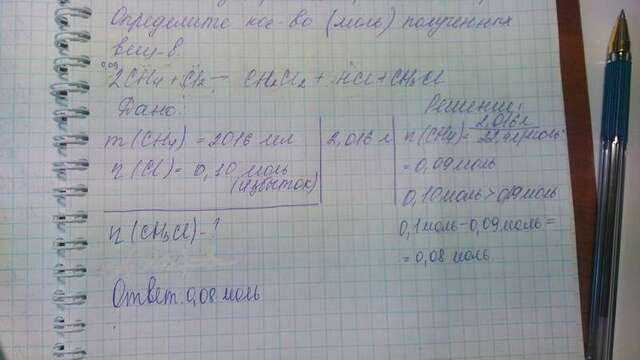 Определите кол-во (моль) полученных
вещ-в
0,09
2CH4 + Cl2 = CH2Cl2 + HCl + CH3Cl
Дано:
m(CH4) = 2016 мл
n(Cl) = 0,10 моль
(избыток)
n(CH3Cl) - ?
2,016 л
Решение:
n(CH4) = 2,016л / 22,4л/моль
= 0,09 моль
0,10 моль > 0,09 моль
0,1 моль - 0,09 моль =
= 0,08 моль
Ответ: 0,08 моль